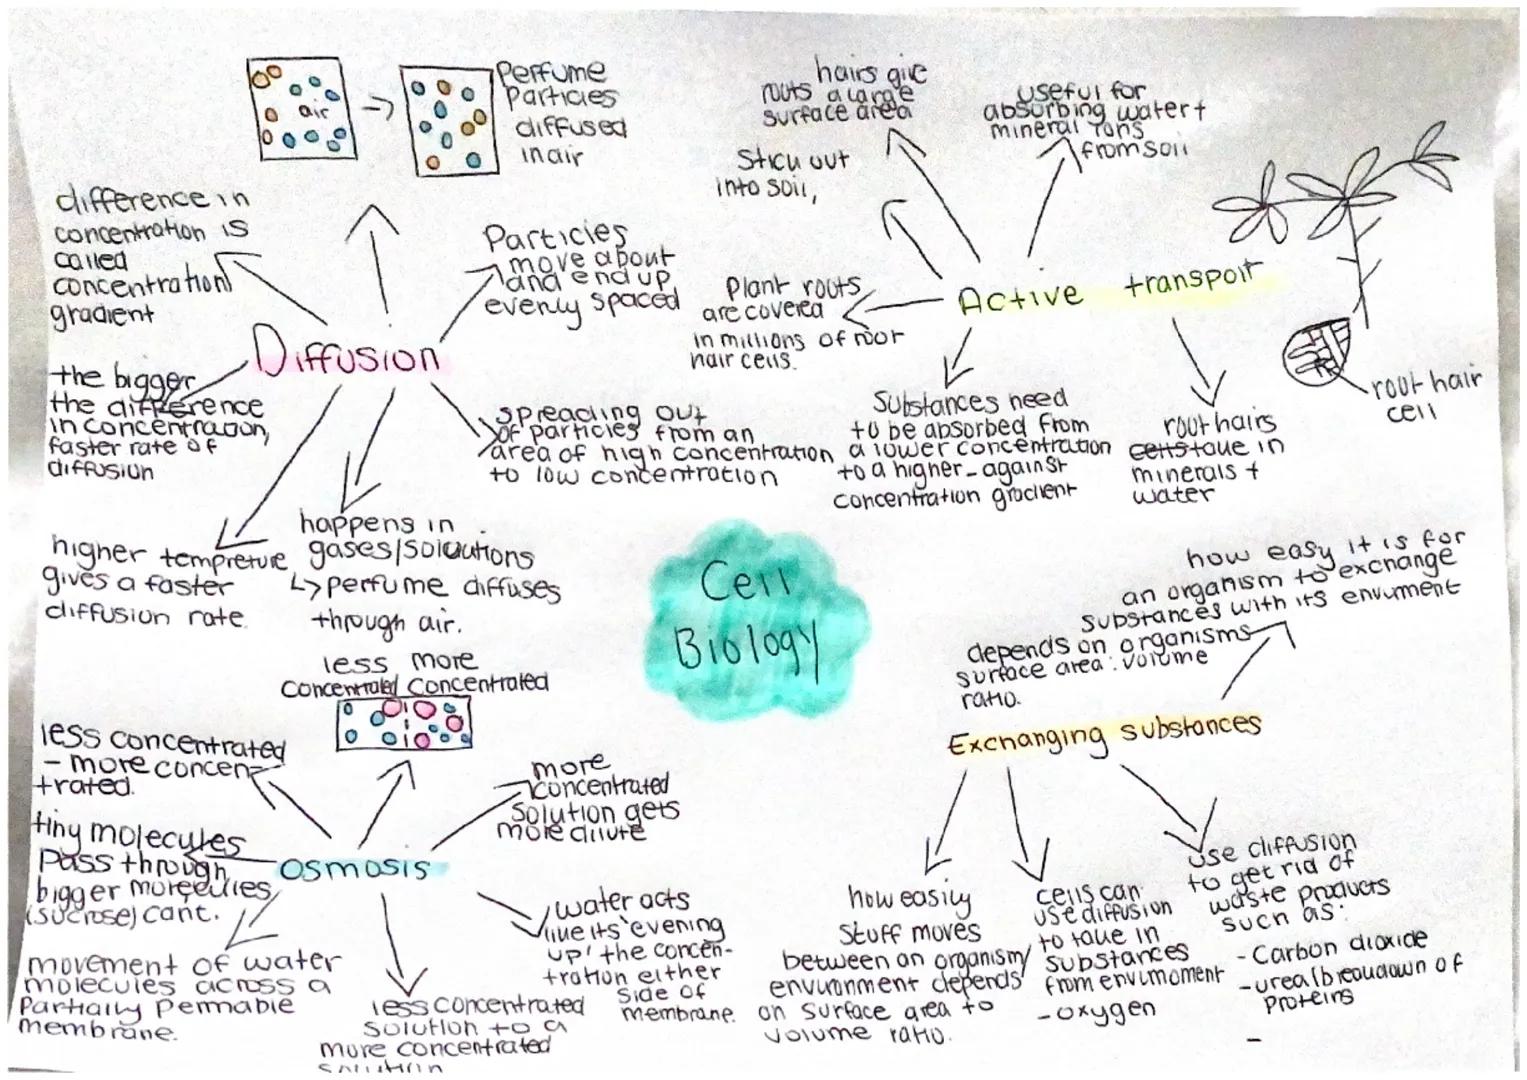 air
Perfume
Particles
diffused
in air
difference in
concentration is
called
concentration
gradient
Particles
move about
and end up
evenly spaced
Diffusion
the bigger
the difference
in concentration,
faster rate of
diffusion
spreading out
of particles from an
area of high concentration
to low concentration
higher tempreture
gives a faster
diffusion rate.
happens in
gases/soluutions
↳ perfume diffuses
through air.
hairs give
roots a large
surface area
useful for
absorbing water +
mineral ions
from soil
Stick out
into soil,
Plant roots
are covered
in millions of root
hair cells.
Active transport
Substances need
to be absorbed from
a lower concentration
to a higher - against
concentration gradient
root hairs
cells take in
minerals +
water
root hair
cell
Cell
Biology
less more
concentrated concentrated
less concentrated
- more concen
trated.
more
concentrated
solution gets
more dilute
tiny molecules
Pass through
bigger molecules
(sucrose) cant.
Osmosis
movement of water
molecules across a
Partially Permable
membrane.
less concentrated
solution to a
more concentrated
solution
water acts
like its 'evening
up' the concen-
tration either
side of
membrane.
how easy it is for
an organism to exchange
substances with its
depends on organisms
surface area : volume
ratio.
Exchanging substances
how easily
stuff moves
between an organism/
environment depends
on surface area to
volume ratio.
cells can
use diffusion
to take in
substances
from
- oxygen
use diffusion
to get rid of
waste products
such as:
- Carbon dioxide
- urea (breakdown of
proteins
-